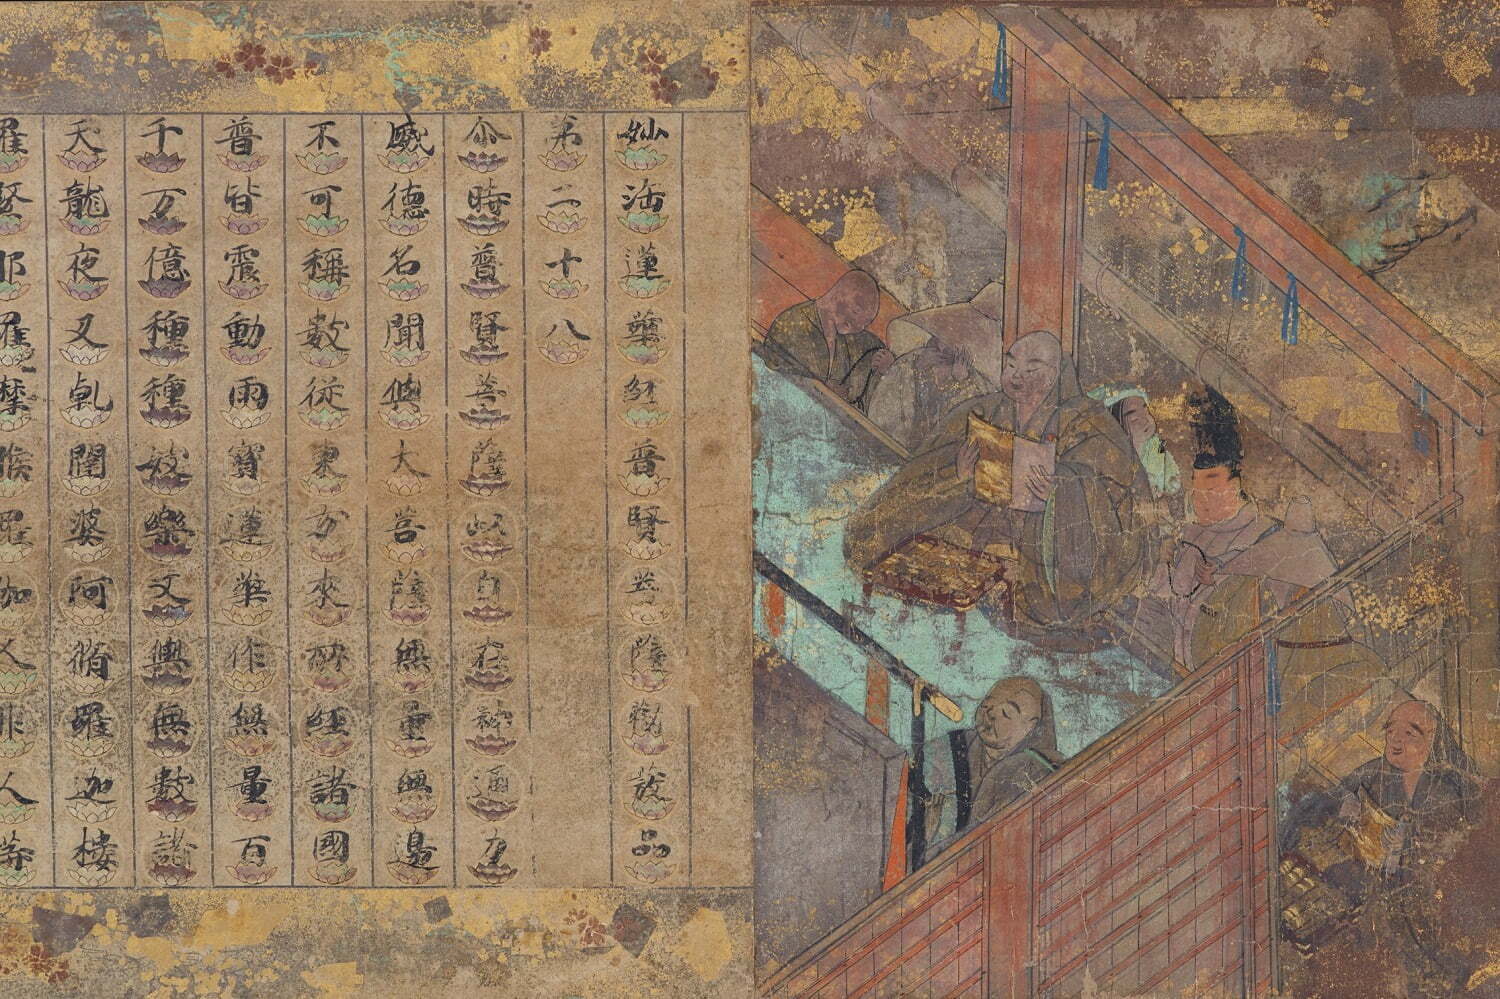 妙法蓮華経普賢菩薩勸發品
第二十八
尒時普賢菩薩以自在神通力
威德名聞與大菩薩無量無邊
不可稱數從東方來所経諸國
普皆震動雨寶蓮華作無量百
千万億種種妓樂又與無數諸
天龍夜叉乹闥婆阿脩羅迦樓
羅緊那羅摩睺羅伽人非人等